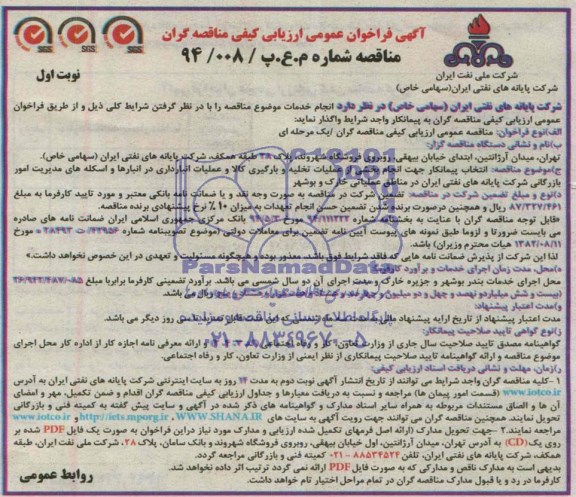 آگهی فراخوان عمومی ارزیابی کیفی مناقصه گران
مناقصه شماره م.ع.پ / ۰۰۸ / ۹۴
نوبت اول
شرکت ملی نفت ایران
شرکت پایانه های نفتی ایران (سهامی خاص)
شرکت پایانه های نفتی ایران (سهامی خاص) در نظر دارد انجام خدمات موضوع مناقصه را با در نظر گرفتن شرایط کلی ذیل و از طریق فراخوان
عمومی ارزیابی کیفی مناقصه گران به پیمانکار واجد شرایط واگذار نماید:
الف)نوع فراخوان: مناقصه عمومی ارزیابی کیفی مناقصه گران /یک مرحله ای
ب)نام و نشانی دستگاه مناقصه گزار:
تهران، میدان آرژانتین، ابتدای خیابان بیهقی، روبروی فروشگاه شهروند، پلاک ۲۸ طبقه همکف، شرکت پایانه های نفتی ایران (سهامی خاص).
ج)موضوع مناقصه: انتخاب پیمانکار جهت انجام بخشی از عملیات تخلیه و بارگیری کالا و عملیات انبارداری در انبارها و اسکله های مدیریت امور
بازرگانی شرکت پایانه های نفتی ایران در مناطق عملیاتی خارک و بوشهر
د)نوع و مبلغ تضمین شرکت در مناقصه: تضمین شرکت در مناقصه به صورت وجه نقد و یا ضمانت نامه بانکی معتبر و مورد تایید کارفرما به مبلغ
ریال و همچنین درصورت برنده شدن تضمین حسن انجام تعهدات به میزان ۱۰٪ نرخ پیشنهادی برنده مناقصه.
*قابل توجه مناقصه گران با عنایت به بخشنامه شماره مورخ بانک مرکزی جمهوری اسلامی ایران ضمانت نامه های صادره
می بایست ضرورتا و لزوما طبق نمونه های پیوست آیین نامه تضمین برای معاملات دولتی (موضوع تصویبنامه شماره مورخ
۱۳۸۲/۰۸/۱۱ هیات محترم وزیران) باشد.
لذا این شرکت از پذیرش ضمانت نامه هایی که فاقد شرایط فوق باشد، معذور بوده و هیچگونه مسئولیت و تعهدی در این خصوص نخواهد داشت.»
ه)محل، مدت زمان اجرای خدمات و برآورد
محل اجرای خدمات بندر بوشهر و جزیره خارک و مدت اجرای آن دو سال شمسی می باشد. برآورد تضمینی کارفرما برابربا مبلغ
(بیست و شش میلیارد و نهصد و چهل و دو میلیون و ریال می باشد.
و)مدت اعتبار پیشنهاد:
مدت اعتبار پیشنهاد از تاریخ ارایه پیشنهاد روز دیگر می باشد.
ز)گواهی تایید صلاحیت پیمانکار:
گواهینامه مصدق تایید صلاحیت سال جاری از وزارت تعاون، کار و رفاه اجتماعی و ارائه معرفی نامه اجازه کار از اداره کار محل اجرای
موضوع مناقصه و ارائه گواهینامه تایید صلاحیت پیمانکاری از نظر ایمنی از وزارت تعاون، کار و رفاه اجتماعی.
ح)زمان، مهلت و نشانی دریافت اسناد ارزیابی کیفی:
۱ –کلیه مناقصه گران واجد شرایط می توانند از تاریخ انتشار آگهی نوبت دوم به مدت ۱۴ روز به سایت اینترنتی شرکت پایانه های نفتی ایران به آدرس
www.iotco.ir (قسمت امور پیمان ها) مراجعه و نسبت به دریافت معیارها و جداول ارزیابی کیفی مناقصه گران اقدام و ضمن تکمیل، مهر و امضای
آن ها و الصاق مستندات مربوطه به همراه سایر اسناد مدارک و گواهینامه های ذکر شده در آگهی و سایت پیش گفته به کمیته فنی و بازرگانی
تحویل نمایند. همچنین مناقصه گران می توانند جهت رویت آگهی به سایت های WWW.SHANA.IR، http://iets.mporg.ir و www.iotco.ir
مراجعه نمایند. ۲ –جهت تحویل مدارک (ارائه اصل فرمهای تکمیل شده ارزیابی و مدارک مورد نیاز دراین فراخوان به صورت یک فایل PDF شده بر
روی یک (CD) به آدرس تهران، میدان آرژانتین، اول خیابان بیهقی، روبروی فروشگاه شهروند و بانک سامان، پلاک ۲۸، شرکت ملی نفت ایران، طبقه
همکف، شرکت پایانه های نفتی ایران، تلفن ۸۸۵۳۴۵۲۴ – ۰۲۱ کمیته فنی و بازرگانی مراجعه گردد.
بدیهی است به مدارک ناقص و مدارکی که به صورت فایل PDF ارائه نمی گردد ترتیب اثر داده نخواهد شد.
کارفرما در رد و یا قبول مدارک مناقصه گران در تمام مراحل اختیار تام خواهد داشت.
روابط عمومی
ParsNamadData
۰۲۱-۸۸۳۴۹۶۷۰-۵